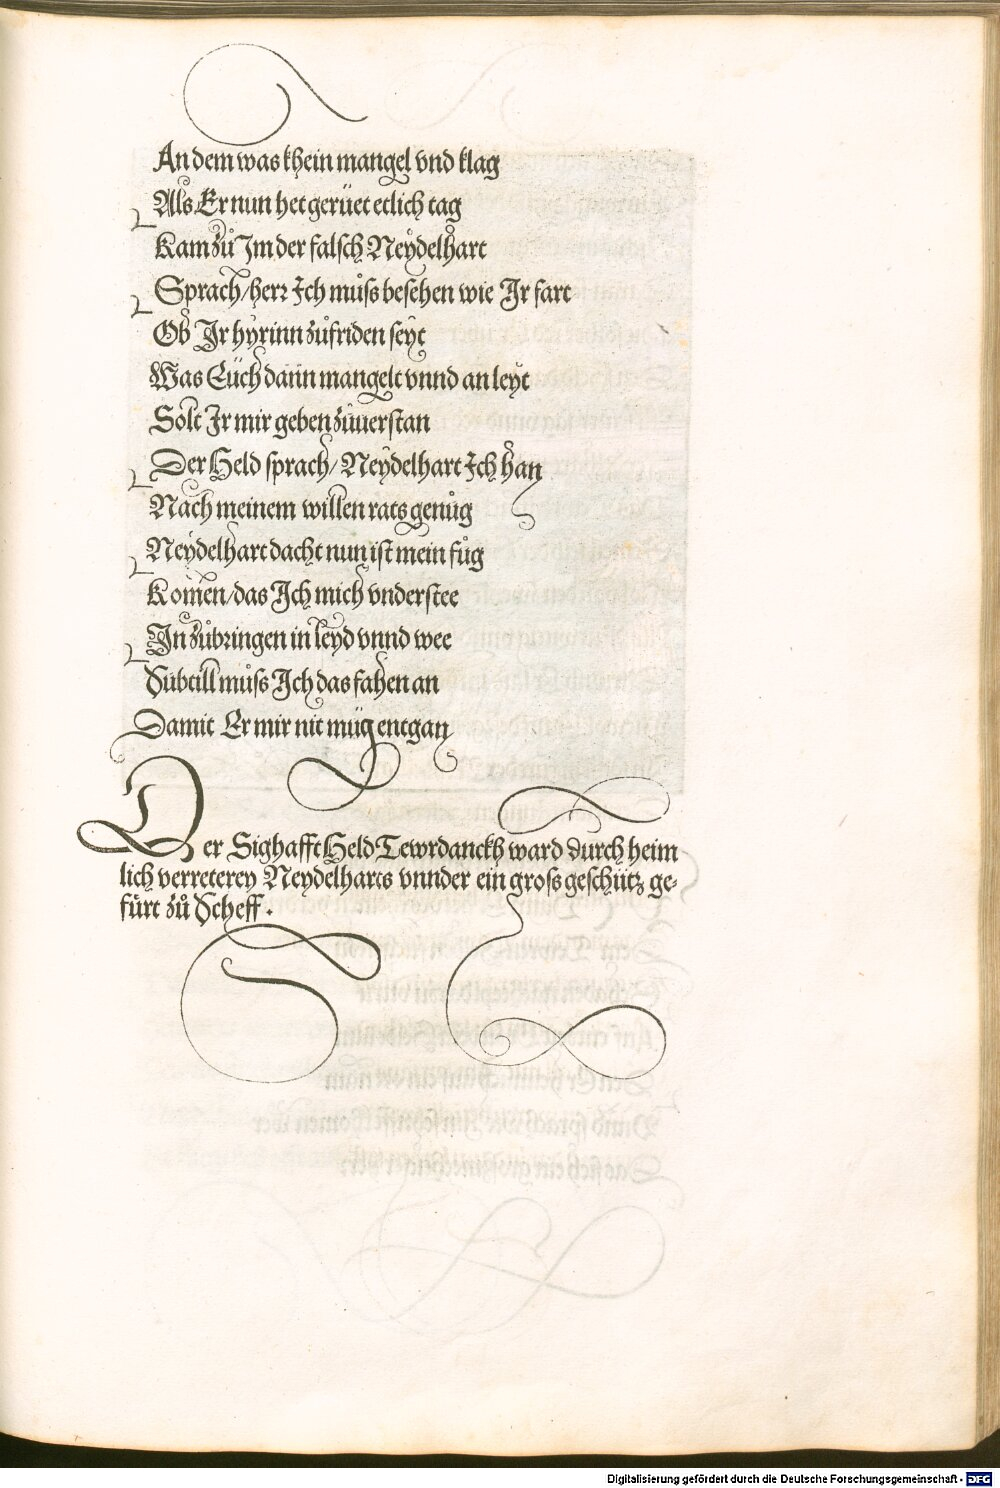 An dem was khein mangel vnd klag
Als Er nun het gerüet etlich tag
Kam zů Im der falsch Neydelhart
Sprach/herr Ich můſs besehen wie Ir fart
Ob Ir hyrinn zůfriden seyt
Was Eüch darin mangelt vnnd an leyt
Solt Ir mir geben zůuerstan
Der Held sprach/ Neydelhart Ich han
Nach meinem willen rats genůg
Neydelhart dacht nun ist mein fůg
Komen/das Ich mich vnderstee
In zůbringen in leyd vnnd wee
Subtill můſs Ich das fahen an
Damit Er mir nit müg entgan
Der Sighafft Held Tewrdanckh ward durch heim
lich verreterey Neydelharts vnnder ein groſs geschütz ge-
fürt zů Scheff.
Digitalisierung gefördert durch die Deutsche Forschungsgemeinschaft - DFG